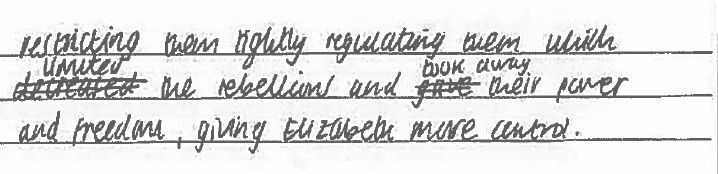 restricting them tightly regulating them which
limited took away
decreased the rebellions and gave their power
and freedom, giving Elizabeth more control.